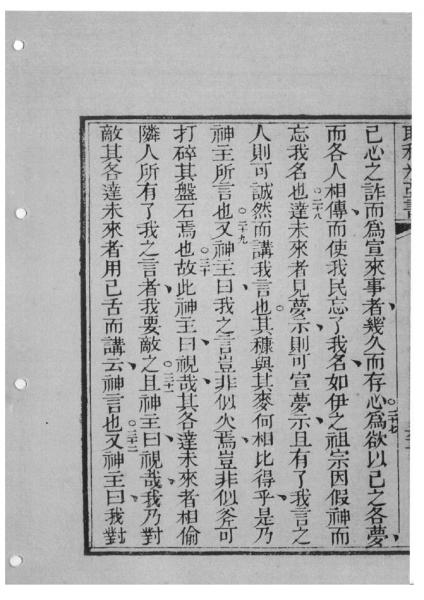 己心之詐而爲宣來事者幾久而存心爲欲以己之各夢
而各人相傳而使我民忘了我名如伊之祖宗因假神而
忘我名也達未來者見夢示則可宣夢示且有了我言之
人則可誠然而講我言也其糠與其麥何相比得乎是乃
神主所言也又神主曰我之言豈非似火焉豈非似斧可
打碎其盤石焉也故此神主曰視哉其各達未來者相偷
隣人所有了我之言者我要敵之且神主曰視哉我乃對
敵其各達未來者用己舌而講云神言也又神主曰我對